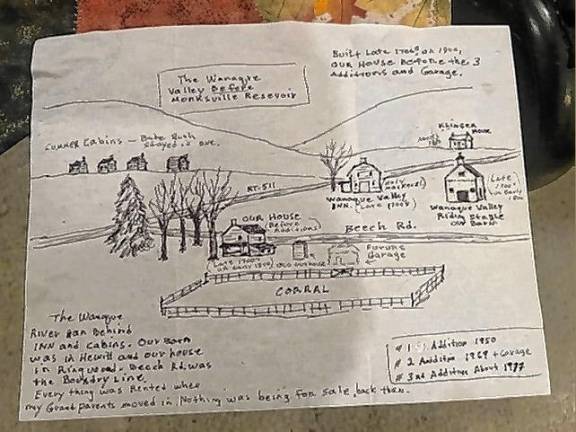 Built Late 1700s or 1800,
Our House Before the 3
Additions and Garage.
The Wanaque
Valley Before
Monksville Resevoir
Summer Cabins - Babe Ruth
stayed in one.
Klinger
House
RT. 511
Wanaque Valley
INN. (Late 1700s)
(Late
1700s
or Early
1800
Wanaque Valley
Riding Stable
Our Barn
Our House
(Before
Additions)
Beech Rd.
Future
Garage
(Late 1700s
or early 1800)
Old outhouse
CORRAL
The Wanaque
River Ran Behind
INN and Cabins. Our Barn
was in Hewitt and our house
in Ringwood. Beech Rd. was
the Boundry Line.
Every thing was Rented when
my Grandparents moved in. Nothing was being for sale back then.
# 1 Addition 1950
# 2 Addition 1969 + Garage
# 3rd Addition About 1977